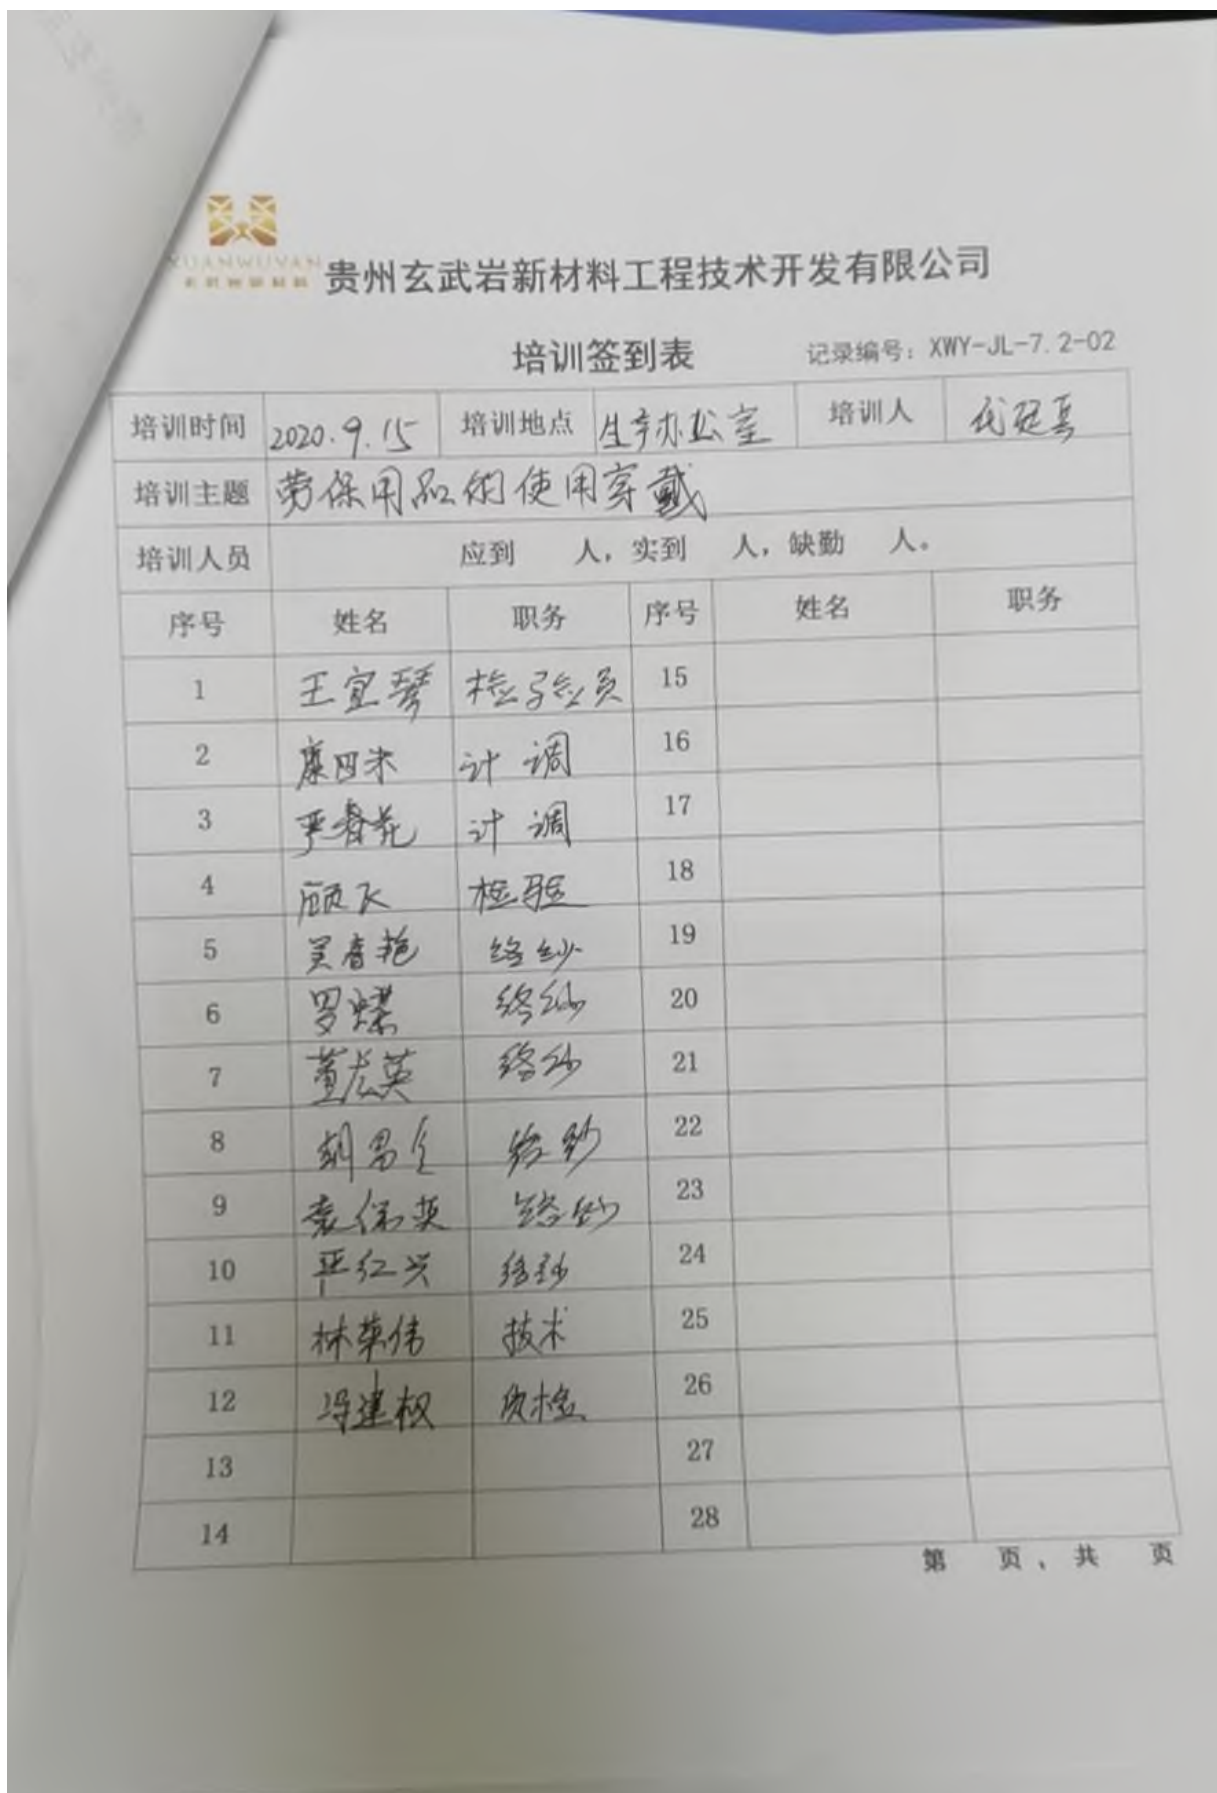 XUANWUYAN
贵州玄武岩新材料工程技术开发有限公司
培训签到表 记录编号：XWY-JL-7.2-02
培训时间 2020.9.15 培训地点 生产办公室 培训人
培训主题 劳保用品的使用穿戴
培训人员 应到 人，实到 人，缺勤 人。
序号 姓名 职务 序号 姓名 职务
1 王宜琴 检验员 15
2 计调 16
3 严春花 计调 17
4 顾飞 检验 18
5 吴春艳 络纱 19
6 罗蝶 络纱 20
7 董龙英 络纱 21
8 络纱 22
9 袁保英 络纱 23
10 严红兴 络纱 24
11 林荣伟 技术 25
12 冯建权 质检 26
13 27
14 28
第 页、共 页